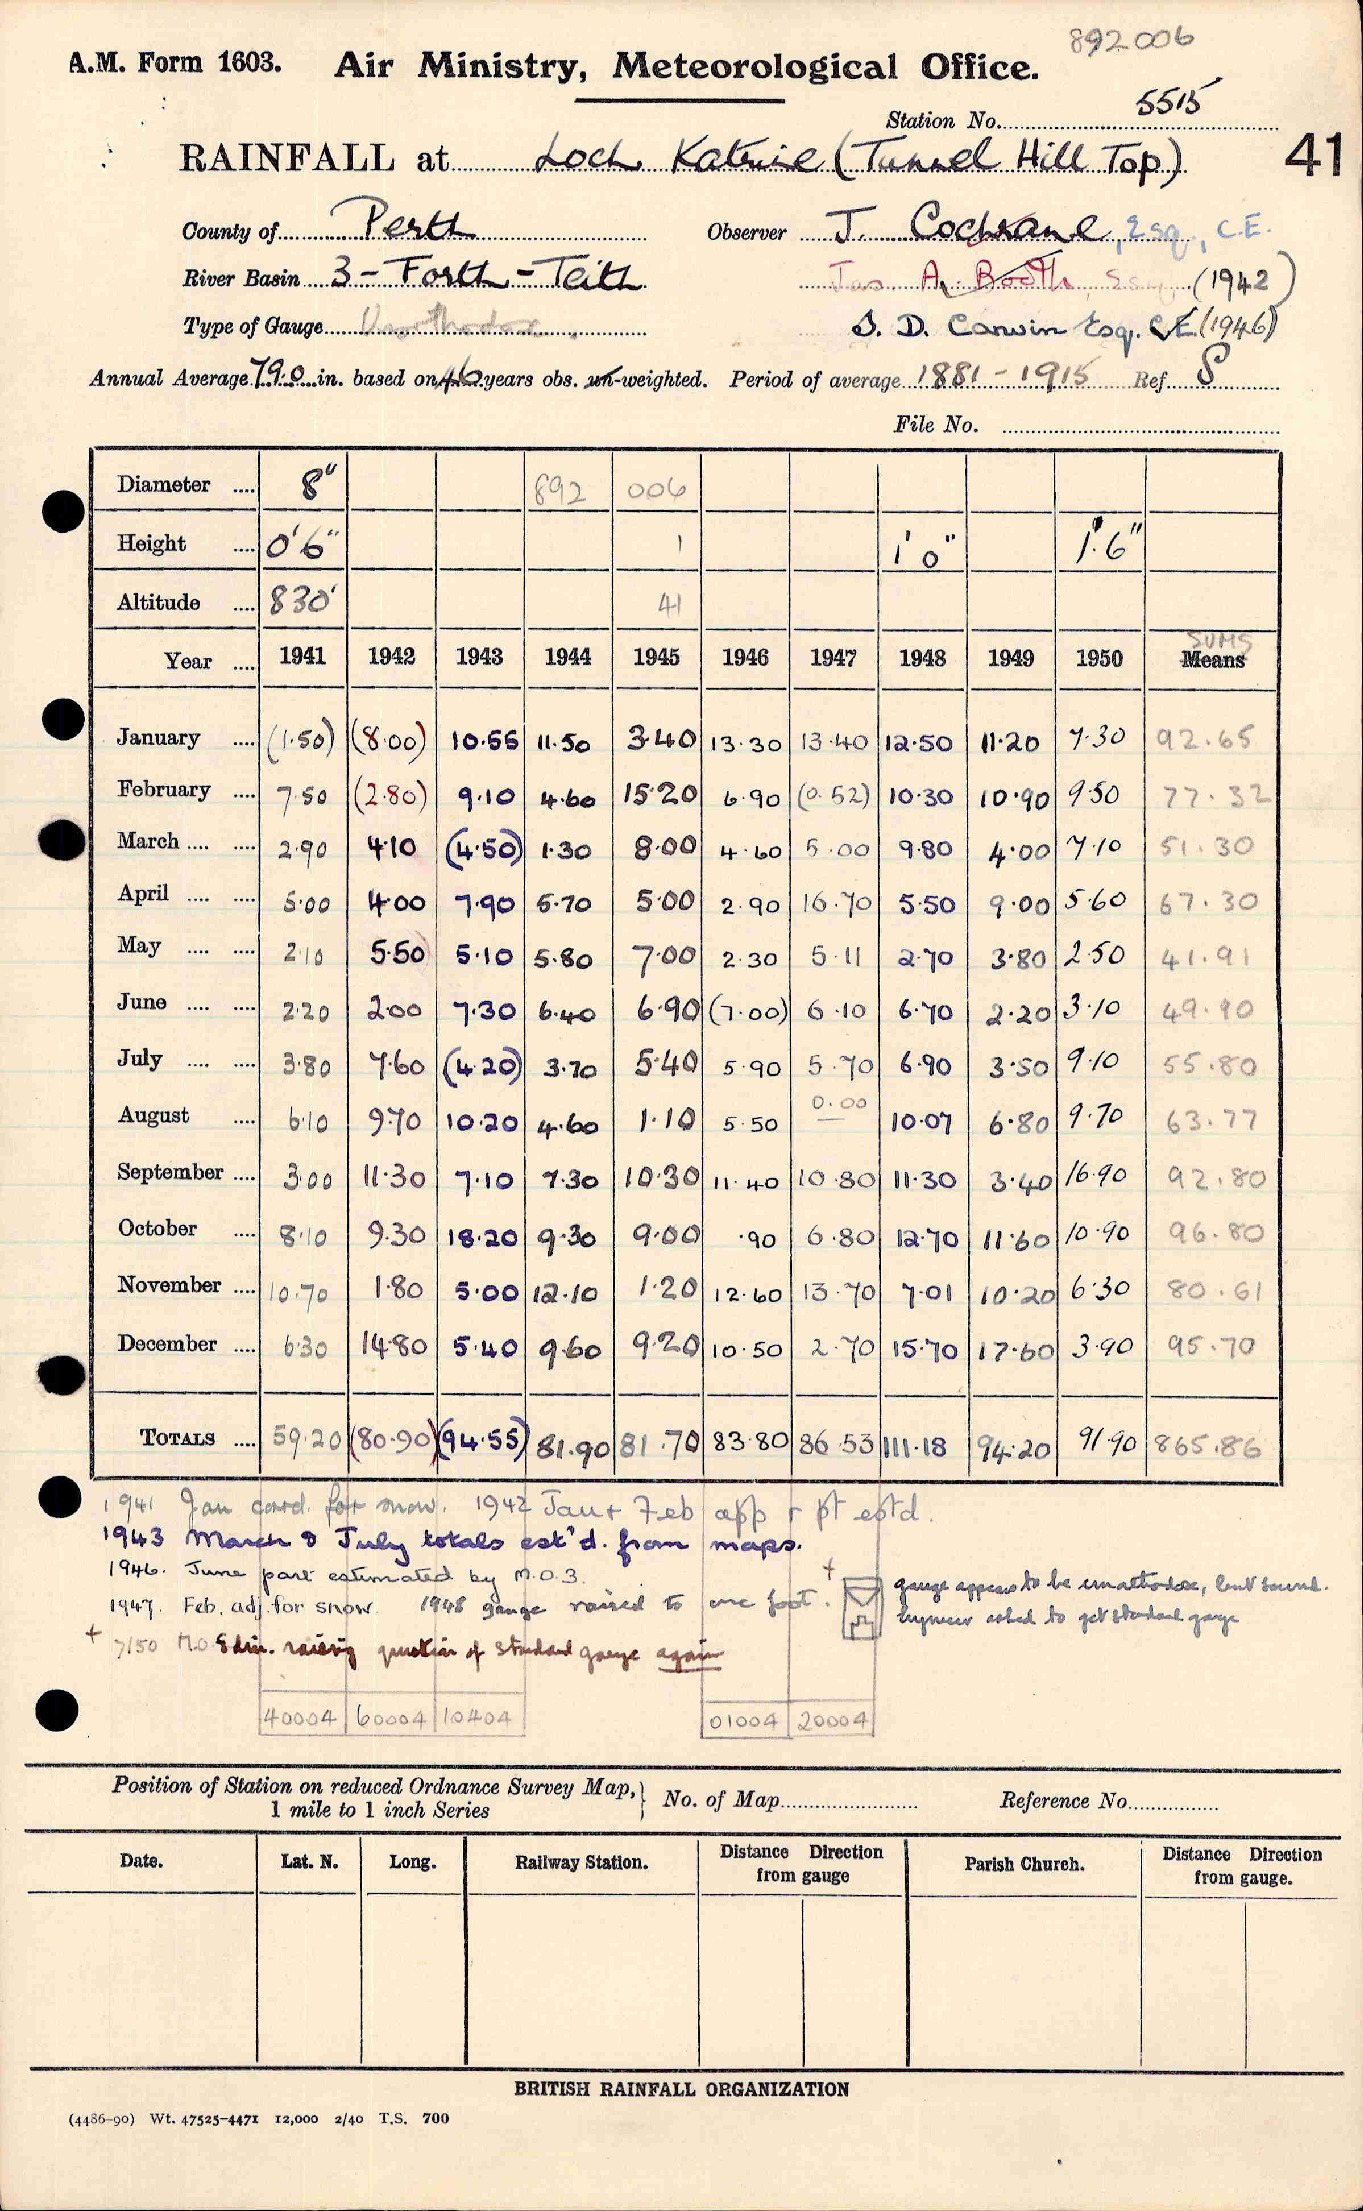 892006
A.M. Form 1603. Air Ministry, Meteorological Office.
Station No. 5515
RAINFALL at Loch Katrine (Tunnel Hill Top) 41
County of Perth Observer J. Cochrane, Esq., C.E.
River Basin 3 - Forth - Teith Jas A. Booth, Esq (1942)
Type of Gauge Unorthodox. J. D. Carwin Esq. C.E. (1946)
Annual Average 79.0 in. based on 46 years obs. un-weighted. Period of average 1881 - 1915 Ref S
File No.
Diameter .... 8" 892 006
Height .... 0'6" 1 1'0" 1'.6"
Altitude .... 830' 41
Year .... 1941 1942 1943 1944 1945 1946 1947 1948 1949 1950 Means SUMS
January .... (1.50) (8.00) 10.55 11.50 3.40 13.30 13.40 12.50 11.20 7.30 92.65
February .... 7.50 (2.80) 9.10 4.60 15.20 6.90 (0.52) 10.30 10.90 9.50 77.32
March .... .... 2.90 4.10 (4.50) 1.30 8.00 4.60 5.00 9.80 4.00 7.10 51.30
April .... .... 5.00 4.00 7.90 5.70 5.00 2.90 16.70 5.50 9.00 5.60 67.30
May .... .... 2.10 5.50 5.10 5.80 7.00 2.30 5.11 2.70 3.80 2.50 41.91
June .... .... 2.20 2.00 7.30 6.40 6.90 (7.00) 6.10 6.70 2.20 3.10 49.90
July .... .... 3.80 7.60 (4.20) 3.70 5.40 5.90 5.70 6.90 3.50 9.10 55.80
August .... 6.10 9.70 10.20 4.60 1.10 5.50 0.00 10.07 6.80 9.70 63.77
September .... 3.00 11.30 7.10 7.30 10.30 11.40 10.80 11.30 3.40 16.90 92.80
October .... 8.10 9.30 18.20 9.30 9.00 .90 6.80 12.70 11.60 10.90 96.80
November .... 10.70 1.80 5.00 12.10 1.20 12.60 13.70 7.01 10.20 6.30 80.61
December .... 6.30 14.80 5.40 9.60 9.20 10.50 2.70 15.70 17.60 3.90 95.70
TOTALS .... 59.20 (80.90) (94.55) 81.90 81.70 83.80 86.53 111.18 94.20 91.90 865.86
1941 Jan corrd. for snow. 1942 Jan + Feb app r pt estd.
1943 March & July totals est'd. from maps.
1946. June part estimated by M.O.3.
1947. Feb. adj. for snow. 1948 gauge raised to one foot.
+ gauge appears to be unorthodox, but sound.
Engineer asked to get standard gauge
+ 7/50 M.O Edin. raising question of standard gauge again
40004 60004 10404 01004 20004
Position of Station on reduced Ordnance Survey Map, 1 mile to 1 inch Series } No. of Map Reference No.
Date. Lat. N. Long. Railway Station. Distance Direction from gauge Parish Church. Distance Direction from gauge.
BRITISH RAINFALL ORGANIZATION
(4486-90) Wt. 47525-4471 12,000 2/40 T.S. 700